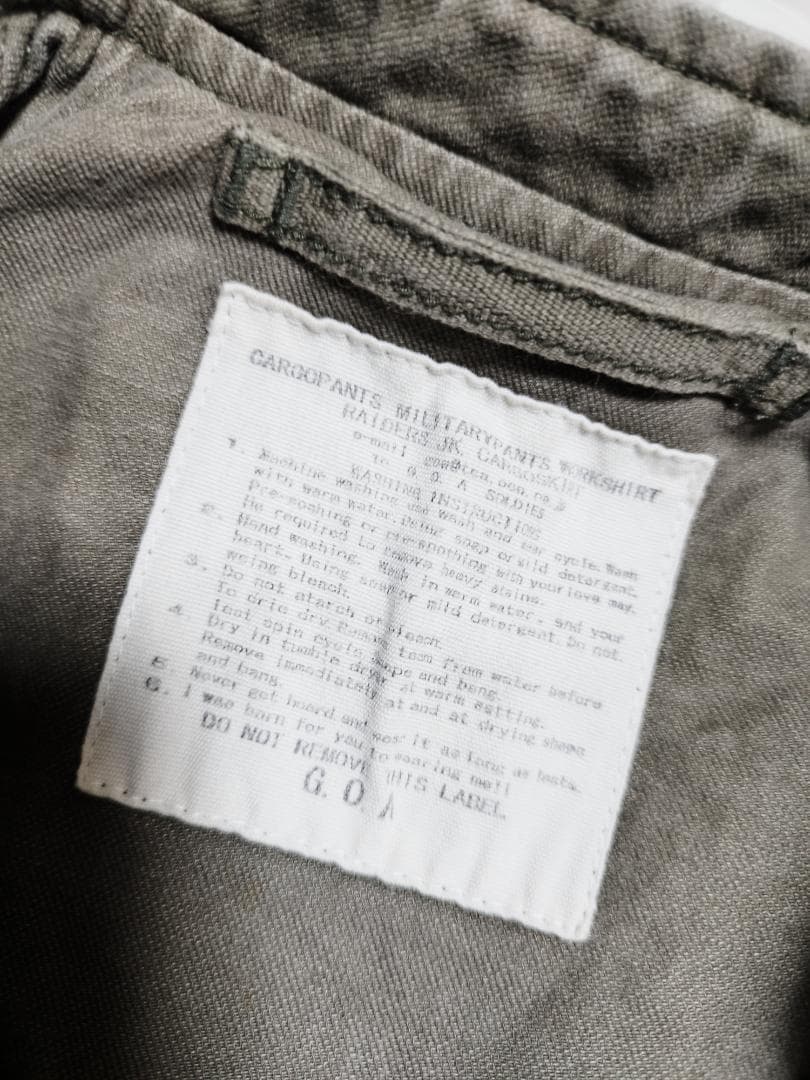 CARGOPANTS MILITARYPANTS WORKSHIRT
RAIDERS JK. CARGOSKIRT
e-mail
to G. O. A SOLDIES
WASHING INSTRUCTIONS
1. Machine washing use wash and war cycle. Wash
with warm water. Using soap or mild detergent.
Pre-soaking or pre-smothing with your love may.
2. He required to remove heavy stains.
Hand washing. Wash in warm water. and your
heart. Using soap or mild detergent. Do not.
using bleach.
3. Do not starch or bleach.
To drie dry. Remove item from water before
last spin cycle and bang.
4. Dry in tumble dryer at warm setting.
Remove immediately at and at drying
and bang.
5. Never get hoard and it as long as lasts.
6. I was barn for you to wearing me!!
DO NOT REMOVE THIS LABEL.
G. O. A